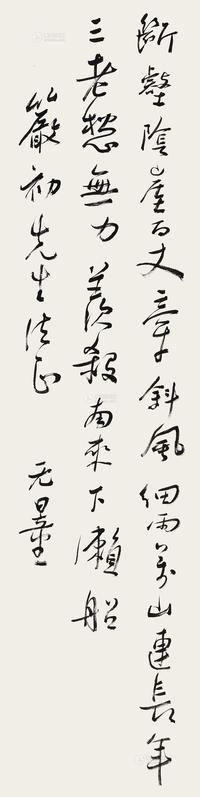 斷壑陰崖百丈牽斜風細雨萬山連長年
三老愁無力羨殺南來下瀨船
嚴初先生法正
无量